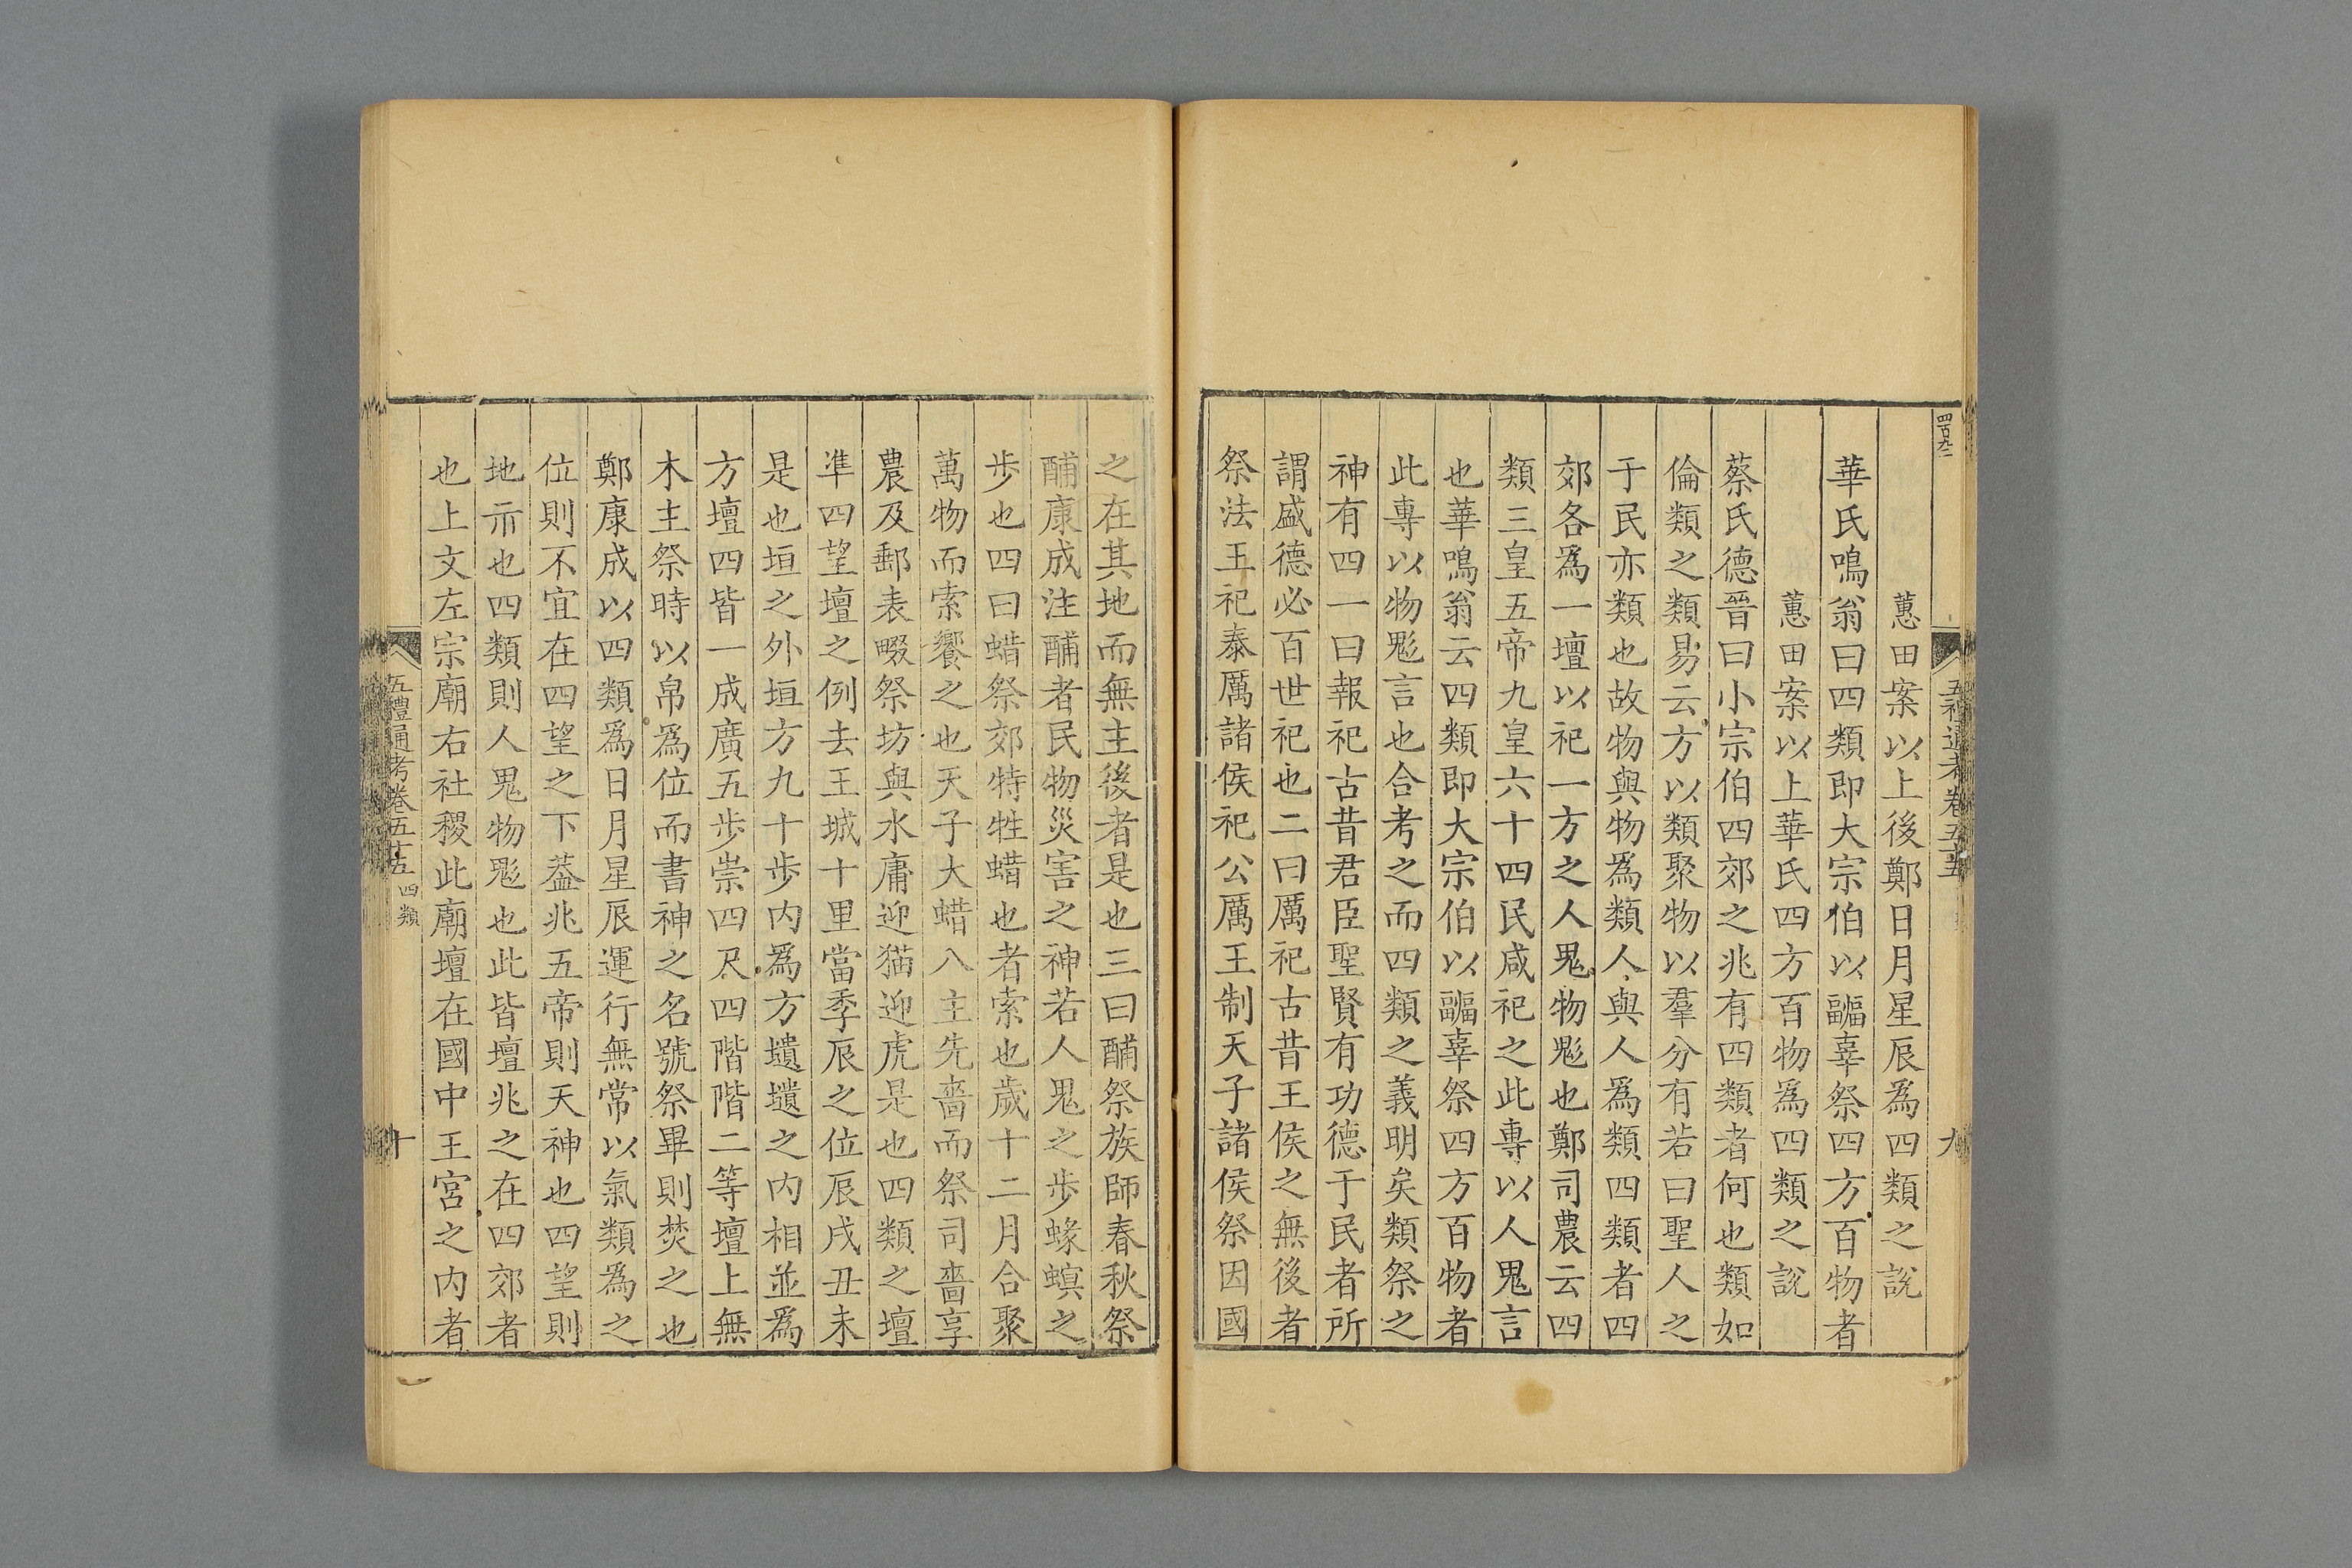 四百九二
五禮通考卷五十五
九
蕙田案以上後鄭日月星辰爲四類之說
華氏鳴翁曰四類即大宗伯以疈辜祭四方百物者
蕙田案以上華氏四方百物爲四類之說
蔡氏德晉曰小宗伯四郊之兆有四類者何也類如
倫類之類易云方以類聚物以羣分有若曰聖人之
于民亦類也故物與物爲類人與人爲類四類者四
郊各爲一壇以祀一方之人鬼物鬽也鄭司農云四
類三皇五帝九皇六十四民咸祀之此專以人鬼言
也華鳴翁云四類即大宗伯以疈辜祭四方百物者
此專以物鬽言也合考之而四類之義明矣類祭之
神有四一曰報祀古昔君臣聖賢有功德于民者所
謂盛德必百世祀也二曰厲祀古昔王侯之無後者
祭法王祀泰厲諸侯祀公厲王制天子諸侯祭因國
之在其地而無主後者是也三曰酺祭族師春秋祭
酺康成注酺者民物災害之神若人鬼之步蝝螟之
步也四曰蜡祭郊特牲蜡也者索也歲十二月合聚
萬物而索饗之也天子大蜡八主先嗇而祭司嗇享
農及郵表畷祭坊與水庸迎猫迎虎是也四類之壇
準四望壇之例去王城十里當季辰之位辰戌丑未
是也垣之外垣方九十步内爲方壝壝之内相並爲
方壇四皆一成廣五步崇四尺四階階二等壇上無
木主祭時以帛爲位而書神之名號祭畢則焚之也
鄭康成以四類爲日月星辰運行無常以氣類爲之
位則不宜在四望之下葢兆五帝則天神也四望則
地示也四類則人鬼物鬽也此皆壇兆之在四郊者
也上文左宗廟右社稷此廟壇在國中王宮之内者
五禮通考卷五十五 四類
十